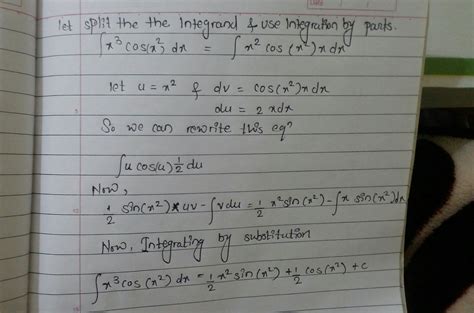 let split the the Integrand & use Integration by parts.
∫x³ cos(x²) dx = ∫x² cos (x²) x dx
let u = x² & dv = cos(x²) x dx
du = 2 x dx
So we can rewrite this eqⁿ
∫u cos(u) 1/2 du
Now,
1/2 sin(x²) * uv - ∫v du = 1/2 x² sin(x²) - ∫x sin(x²) dx
Now, Integrating by substitution
∫x³ cos(x²) dx = 1/2 x² sin(x²) + 1/2 cos(x²) + c